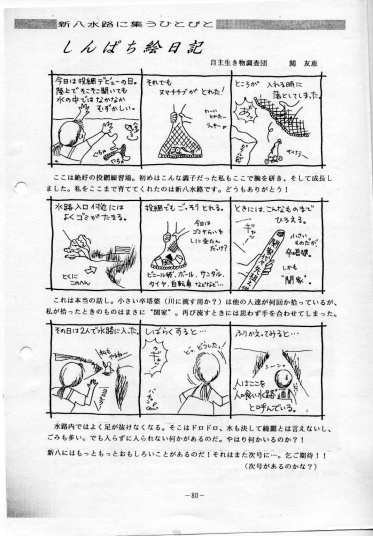 新八水路に集うひとびと
しんぱち絵日記
自主生き物調査団　関　友恵
今日は投網デビューの日。
陸上でそこそこ開いても
水の中ではなかなか
むずかしい。
それでも
ヌマチチブがとれた!
ところが 入れる時に
落としてしました。
ここは絶好の投網練習場。初めはこんな調子だった私もここで腕を研き、そして成長し
ました。私をここまで育ててくれたのは新八水路です。どうもありがとう!
水路入口付近には
よくゴミがたまる。
とくに
このへん
投網でもごっそりとれる。
今日は
ゴミすらいを
しに来たん
だっけ?
ビニール袋、ボール、サンダル、
タイヤ、自転車 などなど…
ときには、こんなものまで
ひろえる。
ギャッ!
小さい
ものだが、
しかも
"関家"。
これは本当の話し。小さい卒塔婆（川に流す用か?）は他の人達が何回か拾っているが、
私が拾ったときのものはまさに"関家"。再び流すときには思わず手を合わせてしまった。
その日は2人で水路に入った。
しばらくすると…
ど、どうした!
ふりかえってみると…
シーーン
人はここを
人喰い水路
と呼んでいる。
水路内ではよく足が抜けなくなる。そこはドロドロ、水も決して綺麗とは言えないし、
ごみも多い。でも入らずに入られない何かがあるのだ。やはり何かいるのか?!
新八にはもっともっとおもしろいことがあるのだ!それはまた次号に…。乞ご期待!!
（次号があるのかな?）
－80－